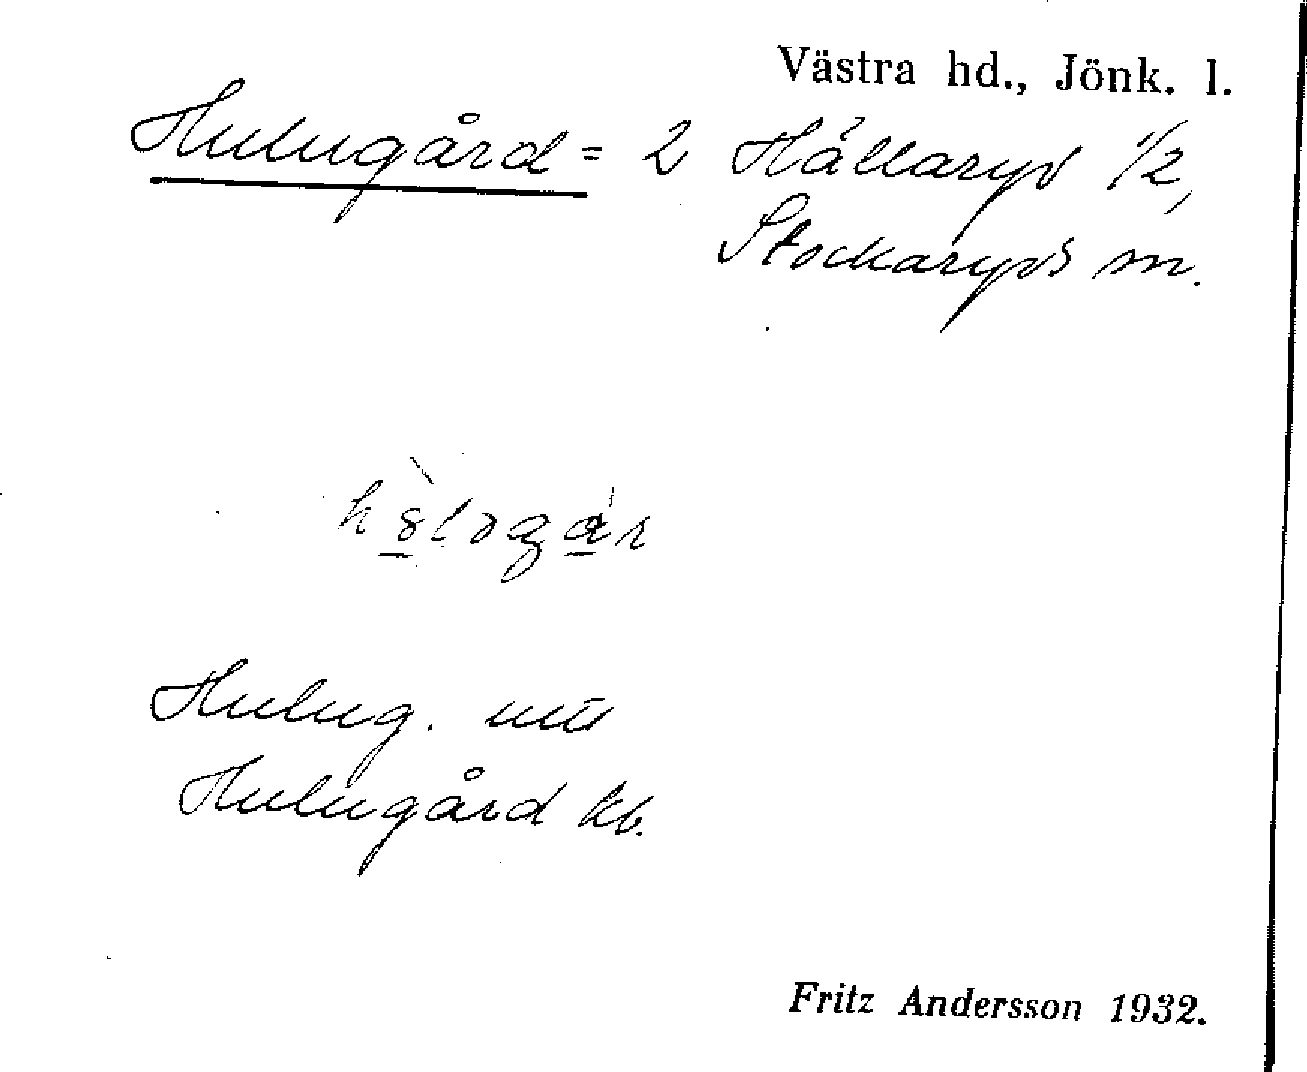 Västra hd., Jönk. l.
Hulugård = 2 Hållaryd 1/2,
Stockaryds sn.
Hulug.
Hulugård kb.
Fritz Andersson 1932.